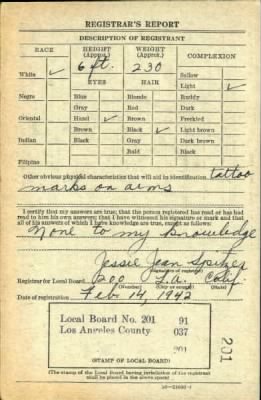 REGISTRAR'S REPORT
DESCRIPTION OF REGISTRANT
RACE HEIGHT (Approx.) WEIGHT (Approx.) COMPLEXION
6 ft. 230
White ✓ EYES HAIR Sallow
Light ✓
Negro Blue Blonde Ruddy
Gray Red Dark
Oriental Hazel ✓ Brown Freckled
Brown Black ✓ Light brown
Indian Black Gray Dark brown
Bald Black
Filipino
Other obvious physical characteristics that will aid in identification tattoo
marks on arms
I certify that my answers are true; that the person registered has read or has had
read to him his own answers; that I have witnessed his signature or mark and that
all of his answers of which I have knowledge are true, except as follows:
None to my knowledge
Jessie Jean Spitzer
Registrar for Local Board 200 L.A. Calif
(Number) (City or county) (State)
Date of registration Feb 14, 1942
Local Board No. 201 91
Los Angeles County 037
201
201
(STAMP OF LOCAL BOARD)
(The stamp of the Local Board having jurisdiction of the registrant
shall be placed in the above space)